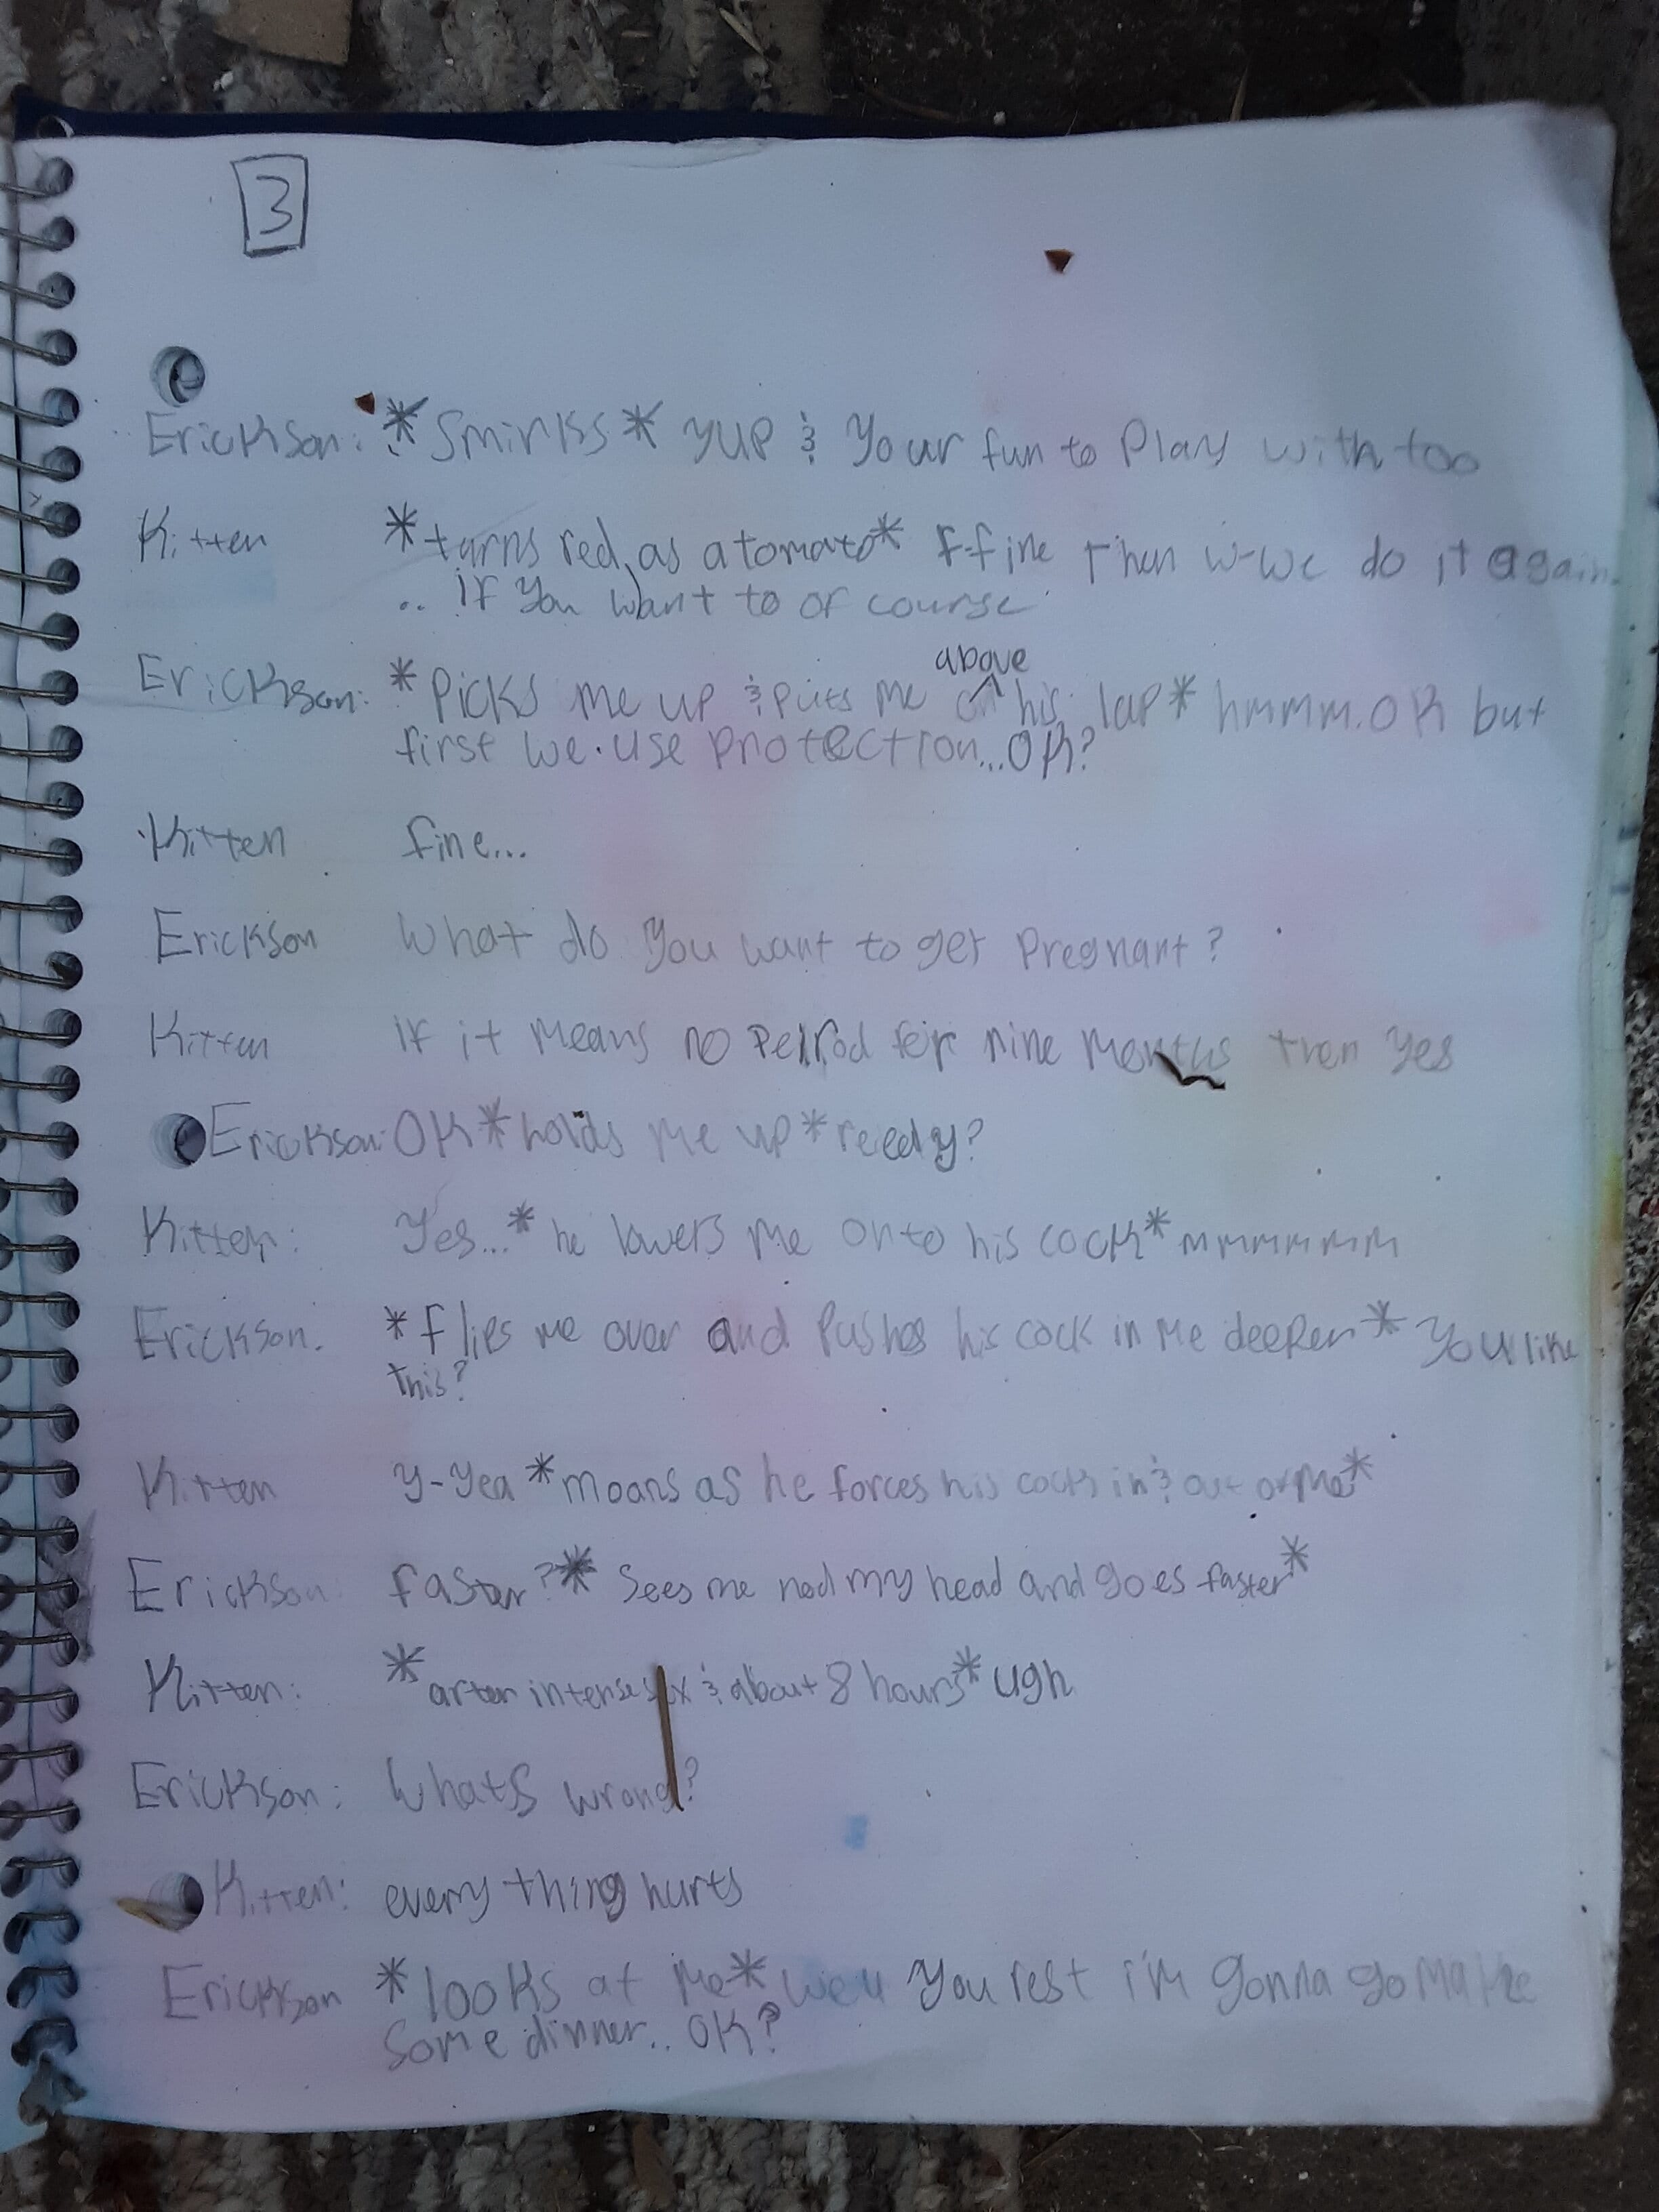 3
Erickson: *smirks* yup & your fun to play with too
Kitten *turns red as a tomato* f-fine then w-we do it again.
.. if you want to of course
above
Erickson: *picks me up & puts me on his lap* hmmm. OK but
first we use protection...OK?
Kitten fine...
Erickson What do you want to get pregnant?
Kitten If it means no period for nine months then yes
Erickson: OK *holds me up* ready?
Kitten: Yes...* he lowers me onto his cock* mmmmmm
Erickson. *flips me over and pushes his cock in me deeper* You like
this?
Kitten y-yea *moans as he forces his cock in & out of me*
Erickson: faster? * sees me nod my head and goes faster*
Kitten: *after intense sex & about 8 hours* ugh
Erickson: Whats wrong?
Kitten: everything hurts
Erickson *looks at me* well you rest i'm gonna go make
some dinner.. OK?